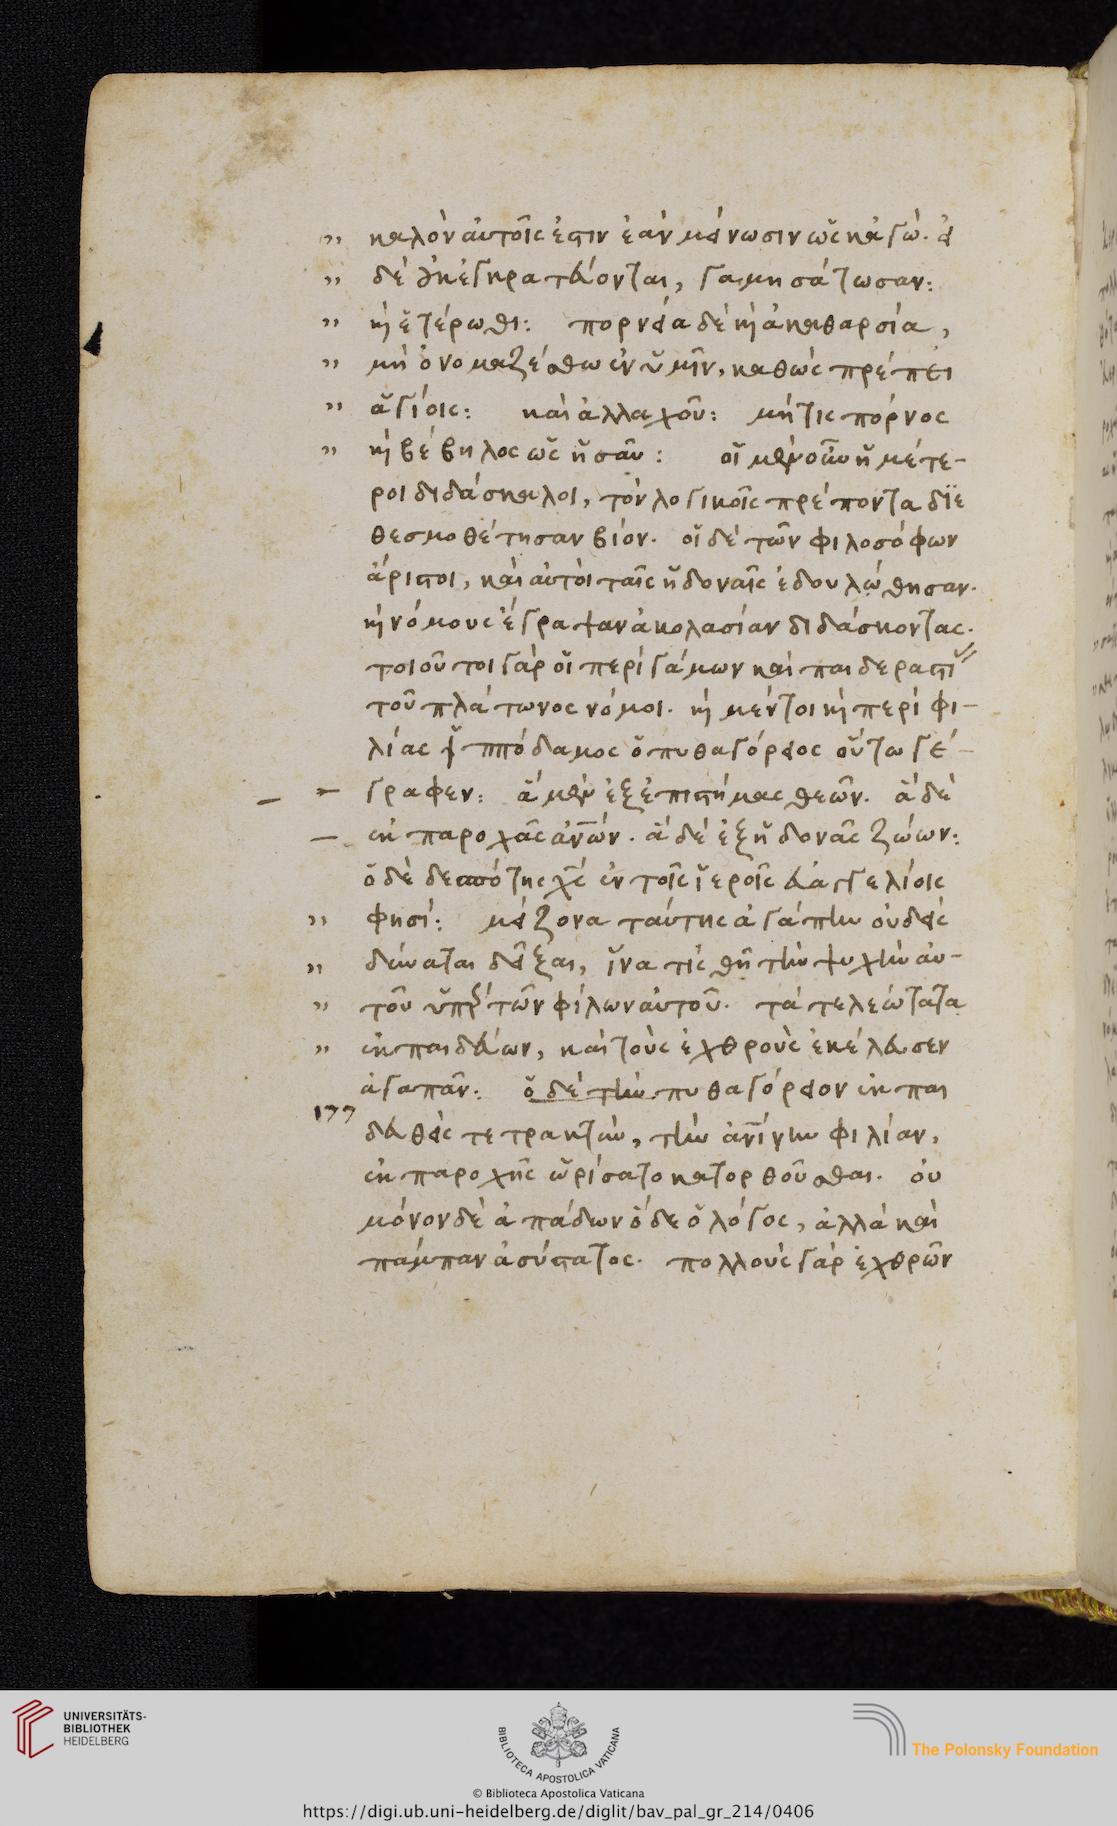 " καλὸν αὐτοῖς ἐστιν ἐὰν μείνωσιν ὡς κἀγώ. εἰ
" δὲ οὐκ ἐγκρατεύονται, γαμησάτωσαν:
" κỳ ἑτέρωθι: πορνεία δὲ κỳ ἀκαθαρσία,
" μὴ ὀνομαζέσθω ἐν ὑμῖν, καθὼς πρέπει
" ἁγίοις: καὶ ἀλλαχοῦ: μήτις πόρνος
" κỳ βέβηλος ὡς ἠσαῦ: οἱ μὲν οὖν ἡμέτε-
ροι διδάσκαλοι, τὸν λογικοῖς πρέποντα διε
θεσμοθέτησαν βίον. οἱ δὲ τῶν φιλοσόφων
ἄριστοι, καὶ αὐτοὶ ταῖς ἡδοναῖς ἐδουλώθησαν.
κỳ νόμους ἔγραψαν ἀκολασίαν διδάσκοντας.
τοιοῦτοι γὰρ οἱ περὶ γάμων καὶ παιδεραστῶν
τοῦ πλάτωνος νόμοι. κỳ μέντοι κỳ περὶ φι-
λίας ἱππόδαμος ὁ πυθαγόρειος οὕτω γέ-
γραφεν: ἁ μὲν ἐξ ἐπιστήμας θεῶν. ἁ δὲ
ἐκ παροχᾶς ἀν̅ων. ἁ δὲ ἐξ ἡδονᾶς ζώων:
ὁ δὲ δεσπότης χ̅ς ἐν τοῖς ἱεροῖς εὐαγγελίοις
" φησί: μείζονα ταύτης ἀγάπην οὐδεὶς
" δύναται δεῖξαι, ἵνα τὶς θῇ τὴν ψυχὴν αὐ-
" τοῦ ὑπὲρ τῶν φίλων αὐτοῦ. τὰ τελεώτατα
" ἐκπαιδεύων, καὶ τοὺς ἐχθροὺς ἐκέλευσεν
ἀγαπᾶν: ὁ δὲ τὴν πυθαγόρειον ἐκπαι
177 δευθεὶς τετρακτύν, τὴν ἀν̅ίνην φιλίαν,
ἐκ παροχῆς ὡρίσατο κατορθοῦσθαι. οὐ
μόνον δὲ ἀπάδων ὅδε ὁ λόγος, ἀλλὰ καὶ
πάμπαν ἀσύστατος. πολλοὺς γὰρ ἐχθρῶν
UNIVERSITÄTS-
BIBLIOTHEK
HEIDELBERG
BIBLIOTECA APOSTOLICA VATICANA
The Polonsky Foundation
© Biblioteca Apostolica Vaticana
https://digi.ub.uni-heidelberg.de/diglit/bav_pal_gr_214/0406